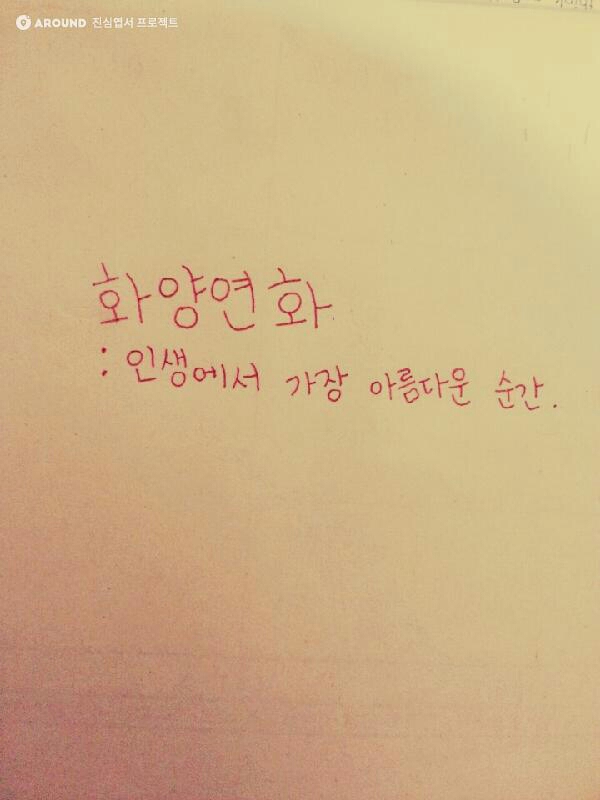 AROUND 진심엽서 프로젝트
화양연화
: 인생에서 가장 아름다운 순간.